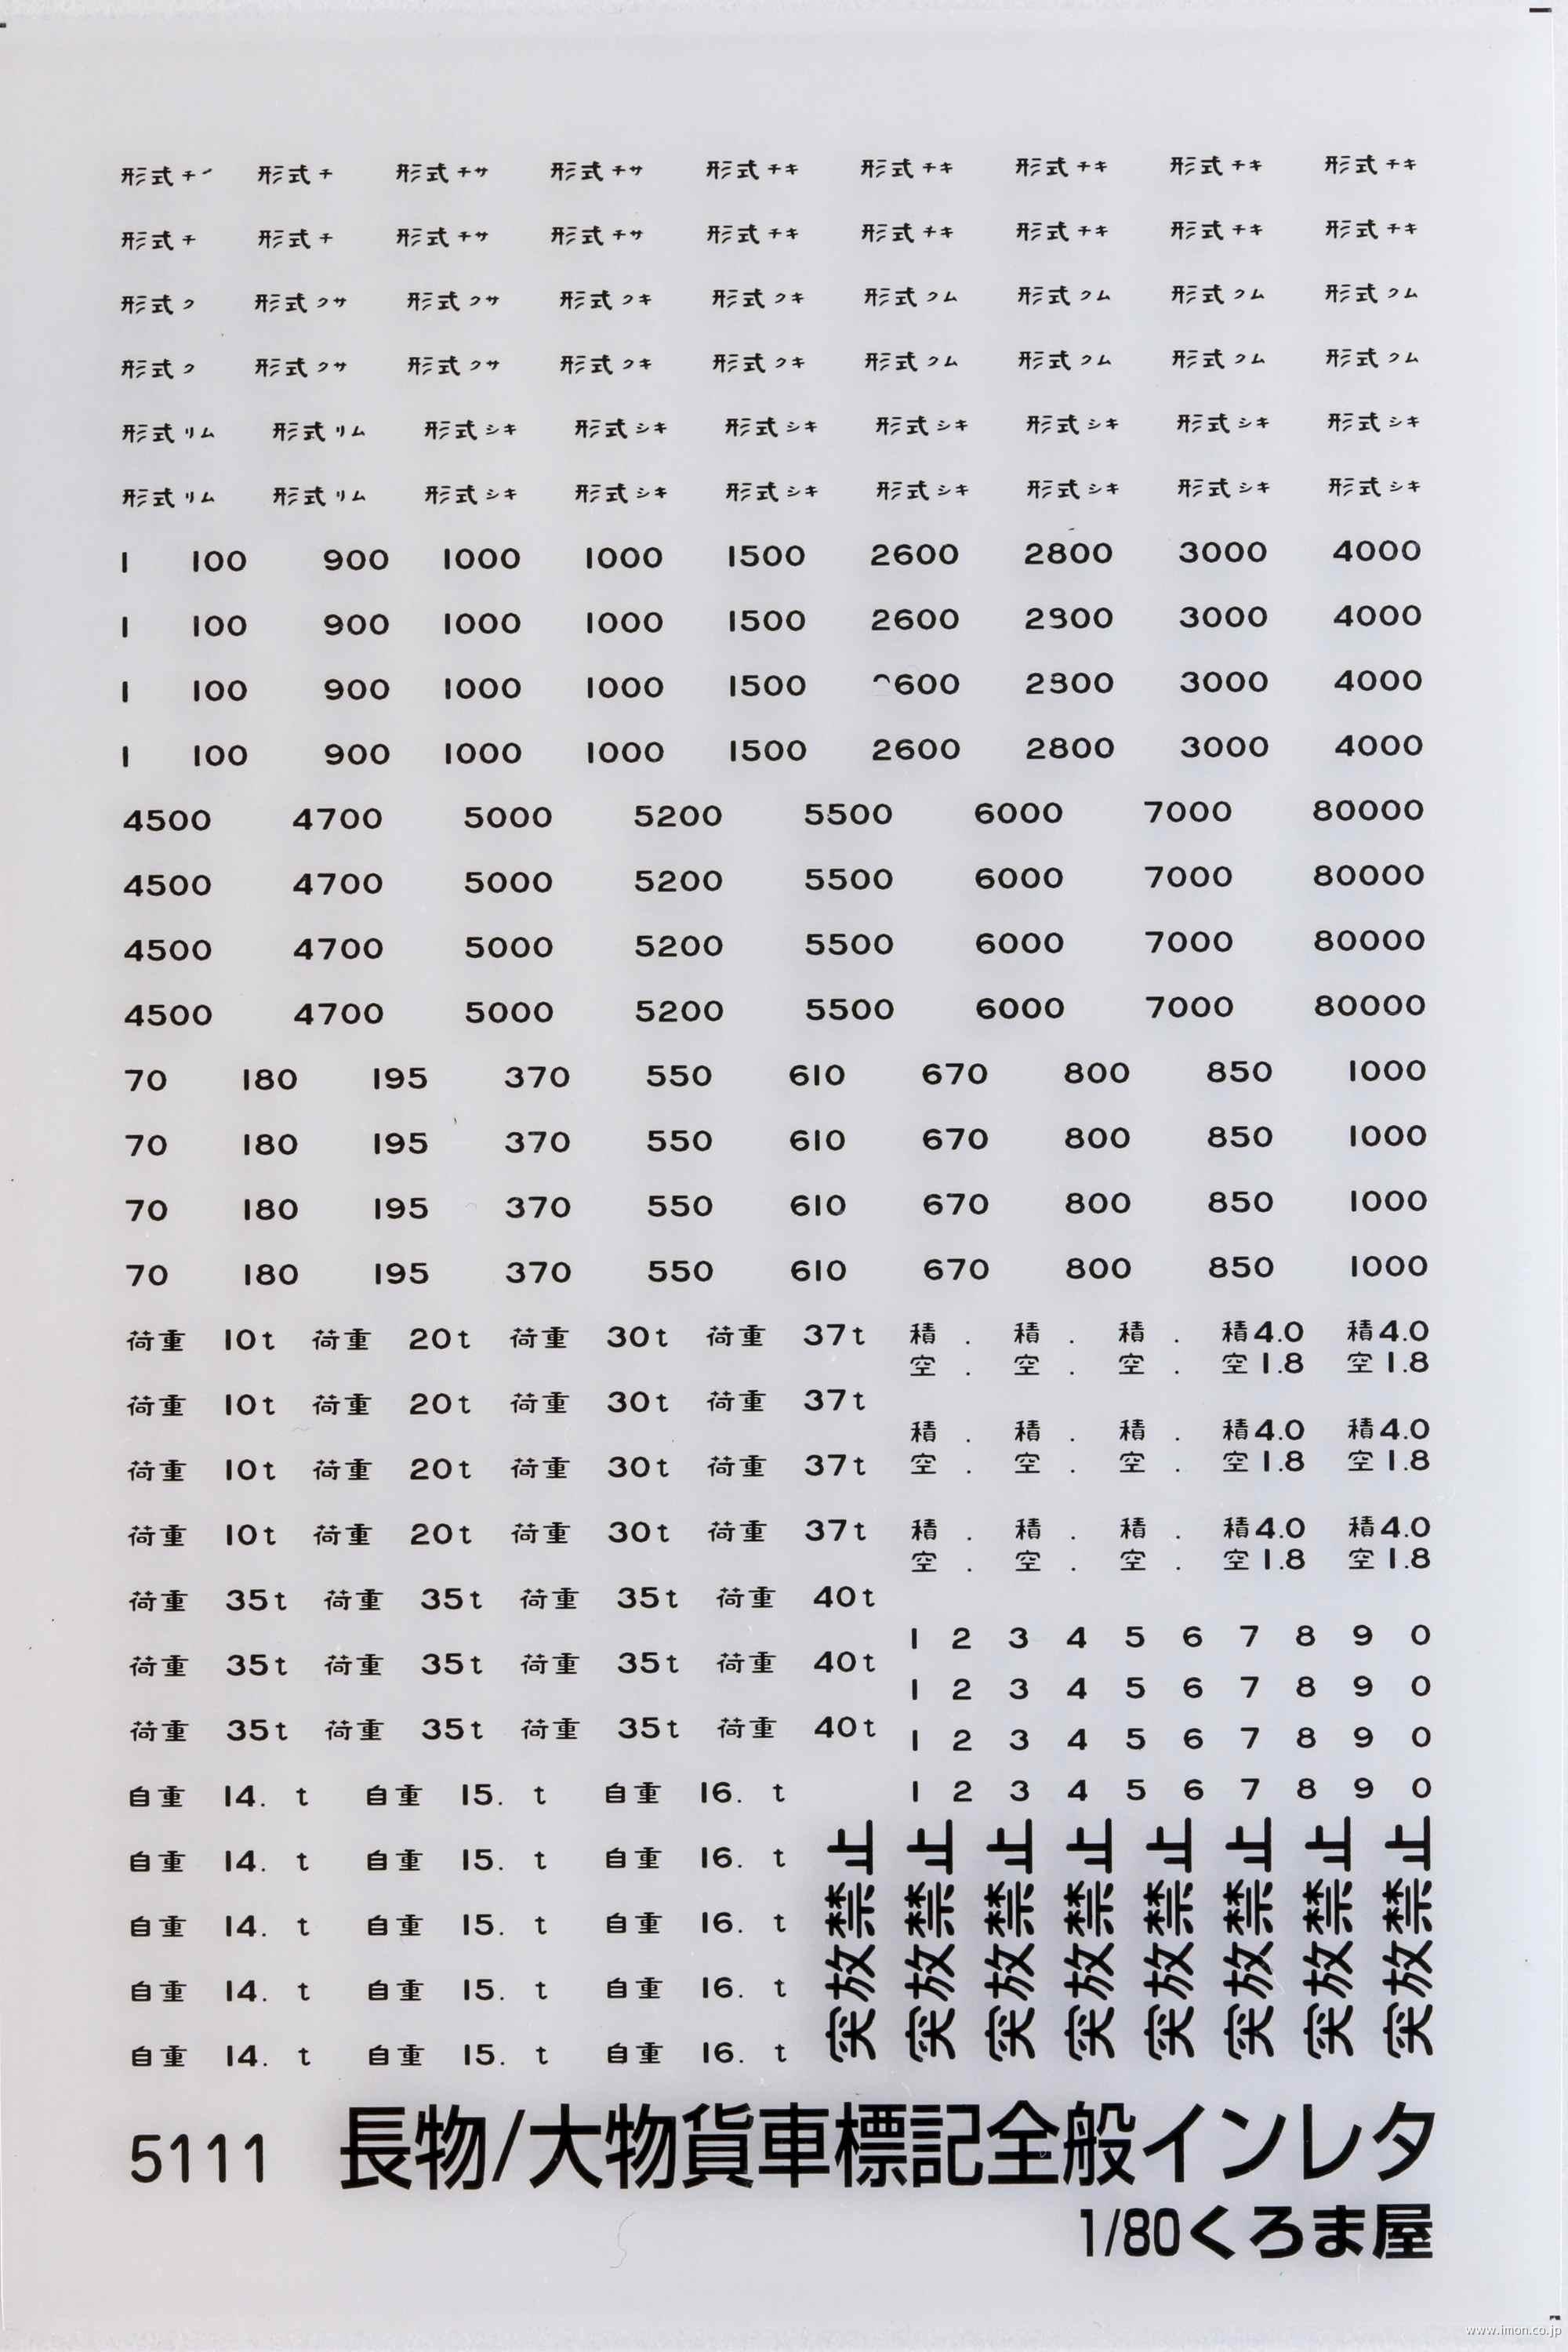 形式チ 形式チ 形式チサ 形式チサ 形式チキ 形式チキ 形式チキ 形式チキ 形式チキ
形式チ 形式チ 形式チサ 形式チサ 形式チキ 形式チキ 形式チキ 形式チキ 形式チキ
形式ク 形式クサ 形式クサ 形式クキ 形式クキ 形式クム 形式クム 形式クム 形式クム
形式ク 形式クサ 形式クサ 形式クキ 形式クキ 形式クム 形式クム 形式クム 形式クム
形式リム 形式リム 形式シキ 形式シキ 形式シキ 形式シキ 形式シキ 形式シキ 形式シキ
形式リム 形式リム 形式シキ 形式シキ 形式シキ 形式シキ 形式シキ 形式シキ 形式シキ
1 100 900 1000 1000 1500 2600 2800 3000 4000
1 100 900 1000 1000 1500 2600 2800 3000 4000
1 100 900 1000 1000 1500 600 2800 3000 4000
1 100 900 1000 1000 1500 2600 2800 3000 4000
4500 4700 5000 5200 5500 6000 7000 80000
4500 4700 5000 5200 5500 6000 7000 80000
4500 4700 5000 5200 5500 6000 7000 80000
4500 4700 5000 5200 5500 6000 7000 80000
70 180 195 370 550 610 670 800 850 1000
70 180 195 370 550 610 670 800 850 1000
70 180 195 370 550 610 670 800 850 1000
70 180 195 370 550 610 670 800 850 1000
荷重 10t 荷重 20t 荷重 30t 荷重 37t
荷重 10t 荷重 20t 荷重 30t 荷重 37t
荷重 10t 荷重 20t 荷重 30t 荷重 37t
荷重 10t 荷重 20t 荷重 30t 荷重 37t
荷重 35t 荷重 35t 荷重 35t 荷重 40t
荷重 35t 荷重 35t 荷重 35t 荷重 40t
荷重 35t 荷重 35t 荷重 35t 荷重 40t
自重 14. t 自重 15. t 自重 16. t
自重 14. t 自重 15. t 自重 16. t
自重 14. t 自重 15. t 自重 16. t
自重 14. t 自重 15. t 自重 16. t
自重 14. t 自重 15. t 自重 16. t
積 . 積 . 積 . 積4.0 積4.0
空 . 空 . 空 . 空1.8 空1.8
積 . 積 . 積 . 積4.0 積4.0
空 . 空 . 空 . 空1.8 空1.8
積 . 積 . 積 . 積4.0 積4.0
空 . 空 . 空 . 空1.8 空1.8
1 2 3 4 5 6 7 8 9 0
1 2 3 4 5 6 7 8 9 0
1 2 3 4 5 6 7 8 9 0
1 2 3 4 5 6 7 8 9 0
突放禁止
突放禁止
突放禁止
突放禁止
突放禁止
突放禁止
突放禁止
突放禁止
5111 長物/大物貨車標記全般インレタ
1/80くろま屋
www.imon.co.jp